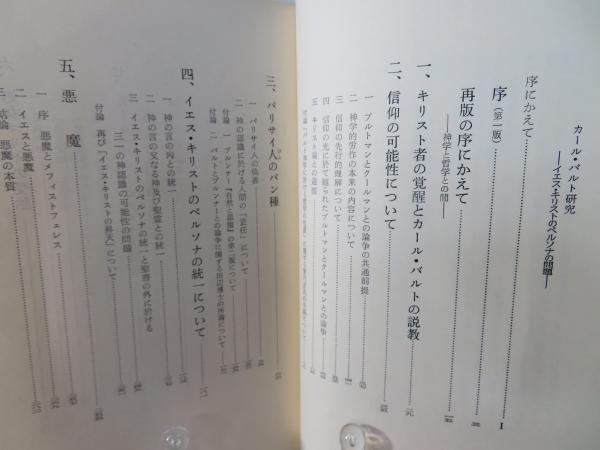 カール・バルト研究
──イエス・キリストのペルソナの問題──
序にかえて
序（第一版） 1
再版の序にかえて
──神学と哲学との間──
一、キリスト者の覚醒とカール・バルトの説教
二、信仰の可能性について
一 ブルトマンとクールマンとの論争の共通前提
二 神学的労作の本来の内容について
三 信仰の先行的理解について
四 信仰の光に於て越られたブルトマンとクールマンとの論争
五 キリスト論との連関
三、パリサイ人のパン種
一 パリサイ人の偽善
二 神の認識に於ける人間の「責任」について
付論 一 ブルンナー『自然と恩寵』の第二版について
付論 二 バルトとブルンナーとの論争に関する田辺博士の所論について
四、イエス・キリストのペルソナの統一について
一 神の言の内との統一
二 神の言の父なる神及び聖霊との統一
三 イエス・キリストのペルソナの統一と聖書の外に於ける
三一の神認識の可能性の問題
付論 再び「イエス・キリストの昇天」について
五、悪魔
一 序 悪魔とメフィストフェレス
二 イエスと悪魔
三 結論 悪魔の本質